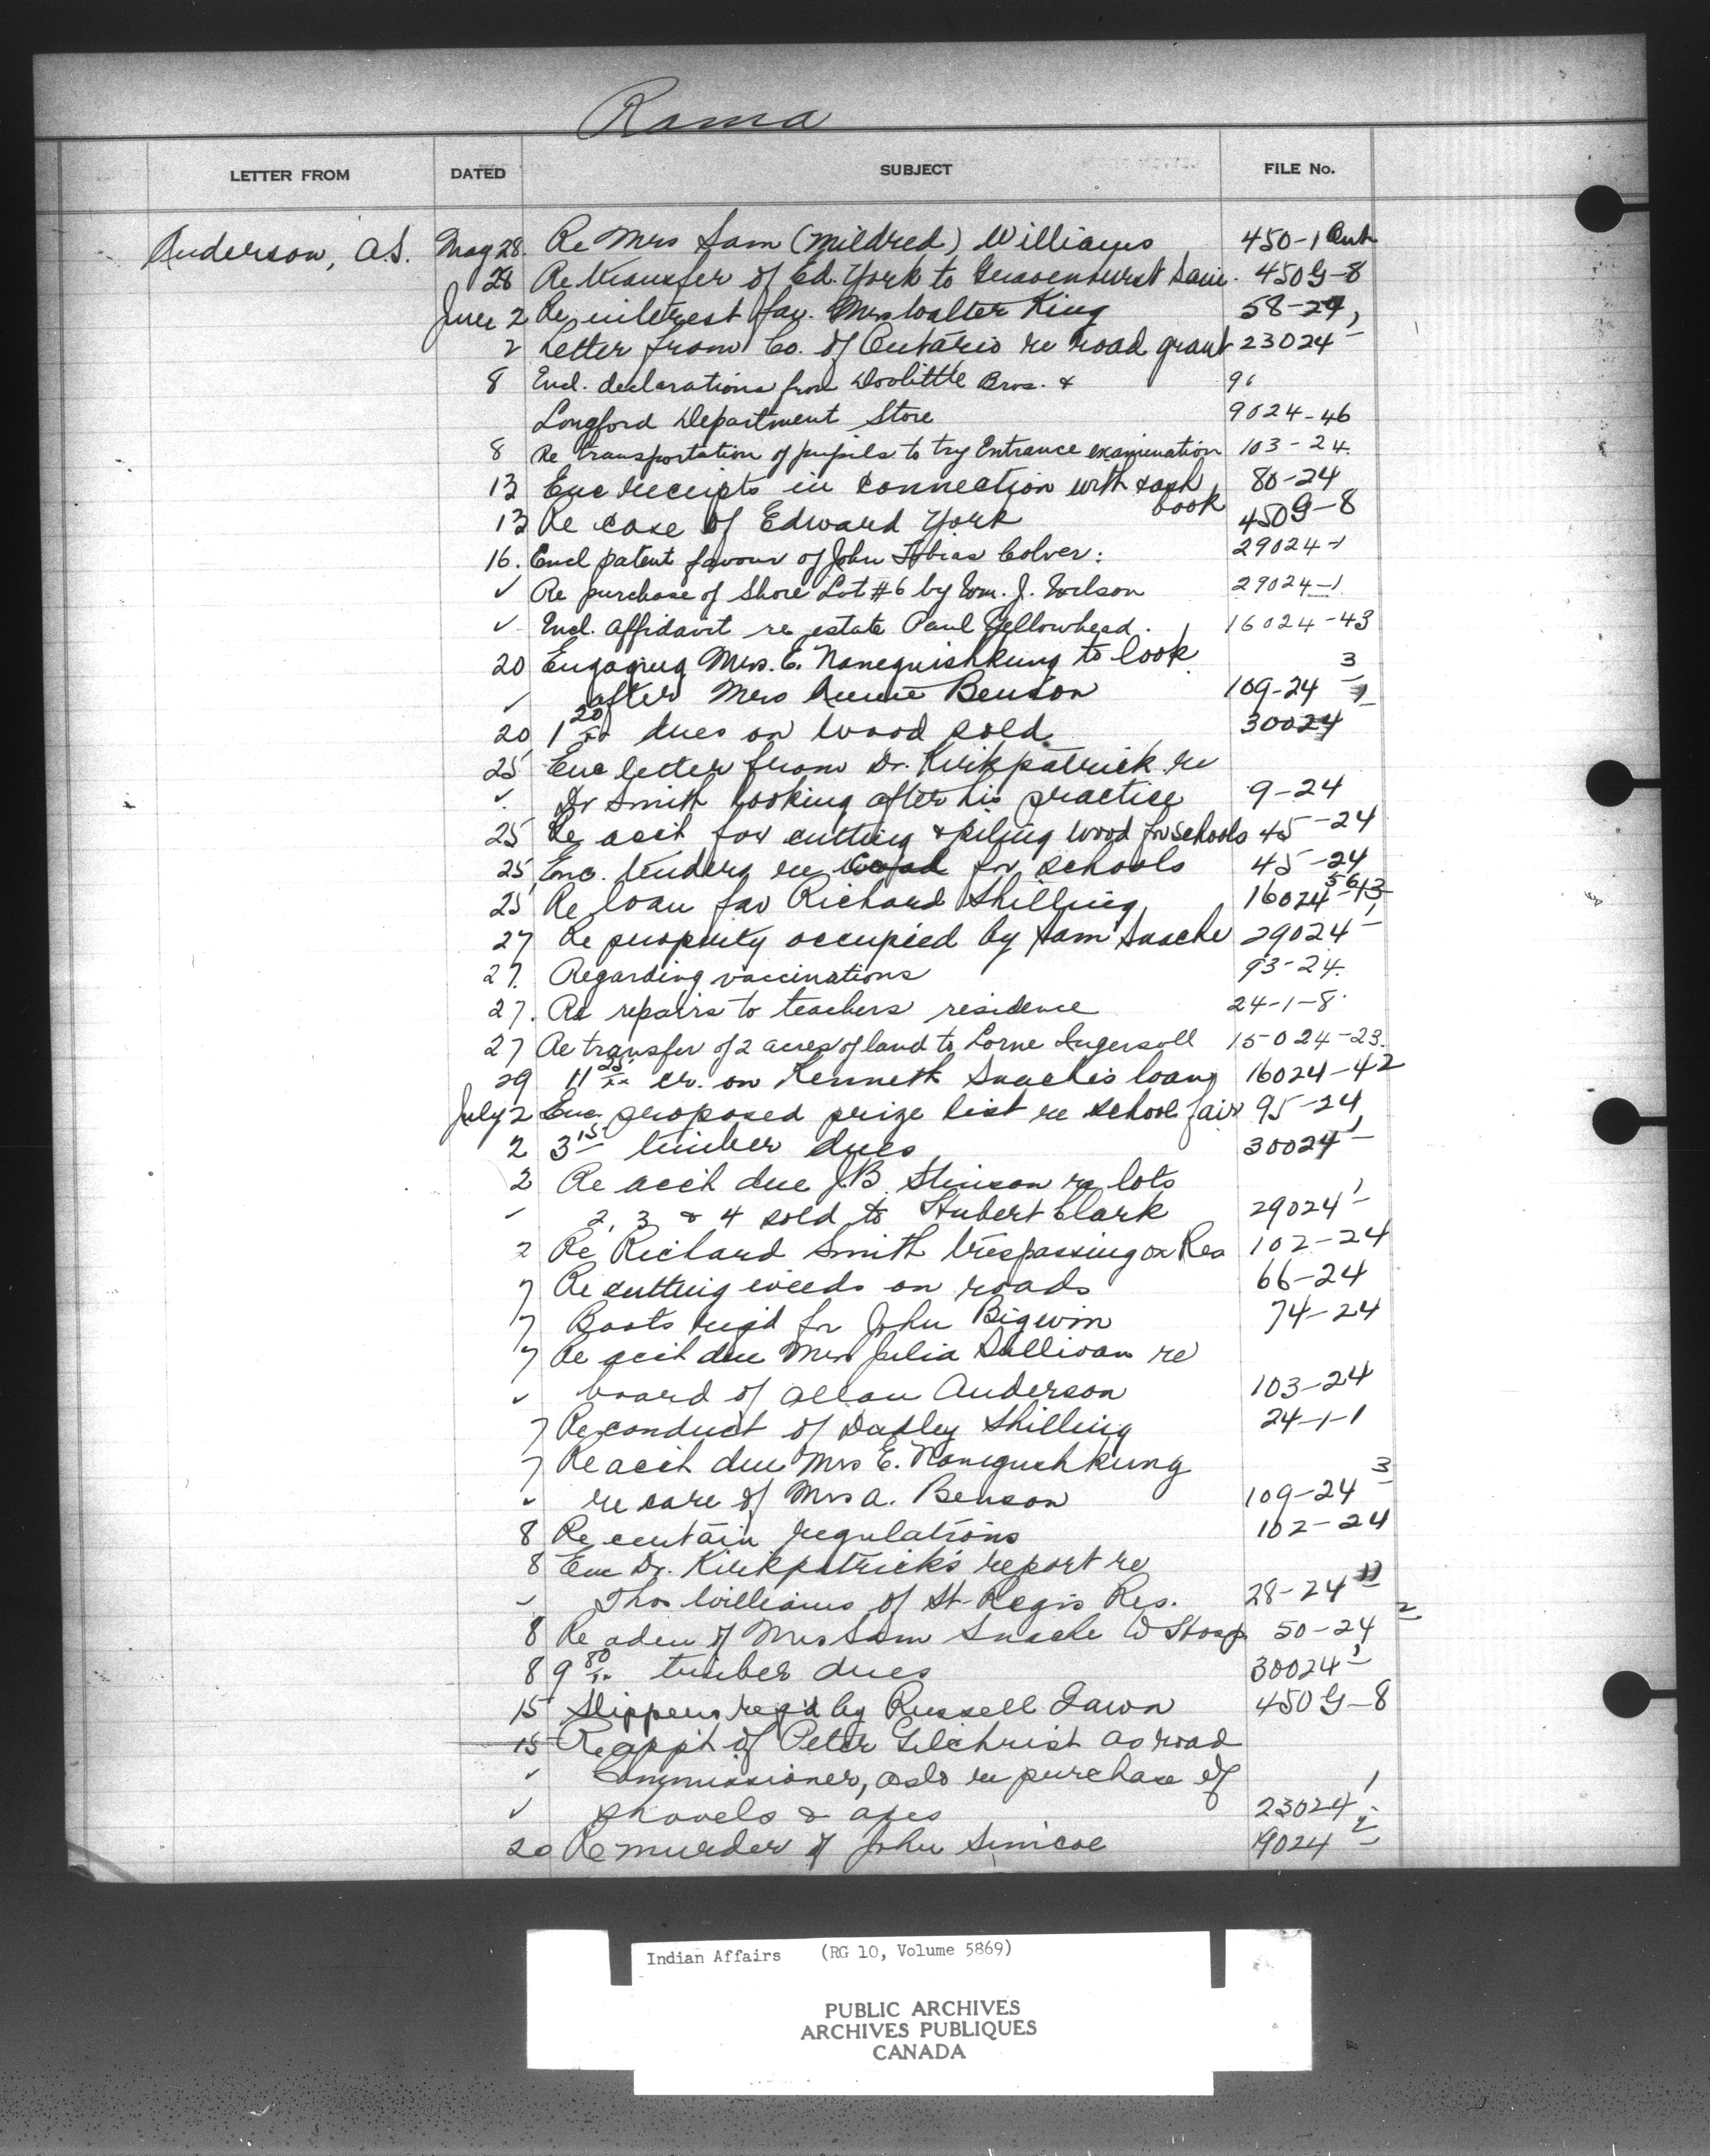 Rama
LETTER FROM DATED SUBJECT FILE No.
Anderson, A.S. May 28. Re Mrs Sam (Mildred) Williams 450-1 Ont
28 Re transfer of Ed. York to Gravenhurst Sani. 450G-8
June 2 Re interest fav. Mrs Walter King 58-24,
2 Letter from Co. of Ontario re road grant 23024-1
8 Encl. declarations from Doolittle Bros. & 96
Longford Department Store 9024-46
8 Re transportation of pupils to try Entrance examination 103-24.
13 Enc receipts in connection with cash book 80-24
13 Re case of Edward York 450G-8
16. Encl patent favour of John Tobias Colver: 29024-1
✓ Re purchase of Shore Lot #6 by Wm. J. Wilson 29024-1
✓ Encl. Affidavit re estate Paul Yellowhead. 16024-43
20 Engaging Mrs. E. Nanegnishkung to look
✓ after Mrs Annie Benson 109-24-3
20 1 20/xx dues on wood sold 30024-1
25 Enc letter from Dr. Kirkpatrick re
✓ Dr Smith looking after his practice 9-24
25 Re acct for cutting & piling wood for schools 45-24
25 Enc. tenders re for schools 45-24
25 Re loan fav Richard Shilling 16024-56
27 Re property occupied by Sam Snache 29024-1
27. Regarding vaccinations 93-24.
27. Re repairs to teachers residence 24-1-8.
27 Re transfer of 2 acres of land to Lorne Ingersoll 15024-23.
29 11 25/xx cr. on Kenneth Snache's loan 16024-42
July 2 Enc. proposed prize list re school fair 95-24
2 3 15/ timber dues 30024-1
2 Re acct due J.B. Stinson re lots
✓ 2, 3 & 4 sold to Hubert Clark 29024-1
2 Re Richard Smith trespassing on Res 102-24
7 Re cutting weeds on roads 66-24
7 Boots reqd for John Bigwin 74-24
7 Re acct due Mrs Julia Sullivan re
✓ board of Allan Anderson 103-24
7 Re conduct of Dudley Shilling 24-1-1
7 Re acct due Mrs E. Nanegushkung
✓ re care of Mrs A. Benson 109-24-3
8 Re certain regulations 102-24
8 Enc Dr. Kirkpatrick's report re
✓ Thos Williams of St Regis Res. 28-24
8 Re adm of Mrs Sam Snache W Hosp 50-24-2
8 9 80/xx timber dues 30024-1
15 Slippers req'd by Russell Fawn 450G-8
15 Re appt of Peter Gilchrist as road
✓ Commissioner, aslo re purchase of
✓ shovels & axes 23024-1
20 Re murder of John Simcoe 19024-2
Indian Affairs (RG 10, Volume 5869)
PUBLIC ARCHIVES
ARCHIVES PUBLIQUES
CANADA